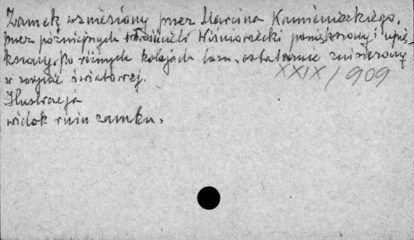 Zamek wzniesiony przez Marcina Kamienieckiego,
przez późniejszych właścicieli Wiśniowiecki powiększony i upięk
szony. Po różnych kolejach losu, ostatecznie zniszczony
w wojnie światowej. XXIX/909
Ilustracja
widok ruin zamku.